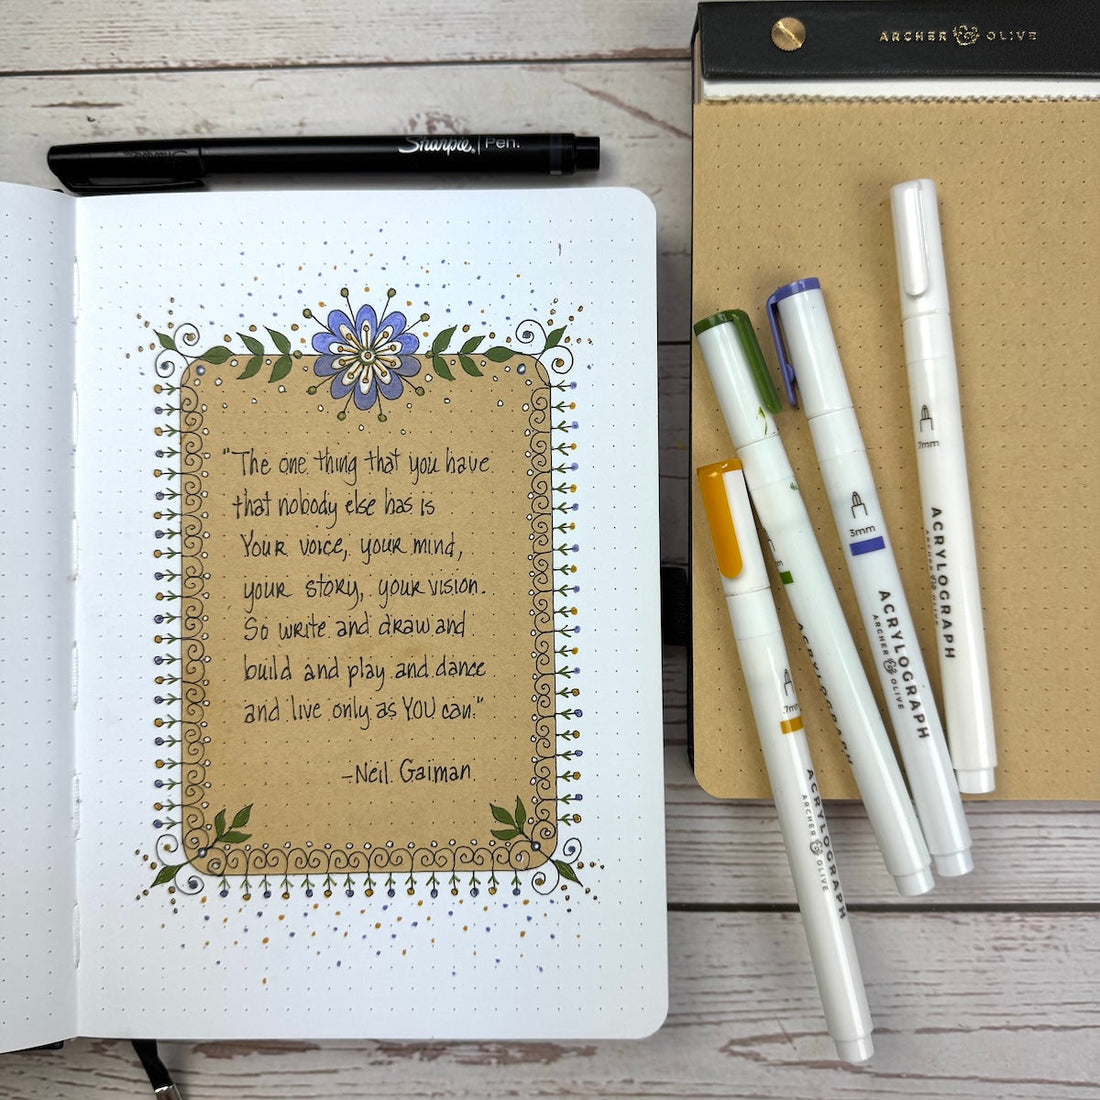 ARCHER & OLIVE
Sharpie. Pen.
"The one thing that you have
that nobody else has is
Your voice, your mind,
your story, your vision.
So write and draw and
build and play and dance
and live only as YOU can."
-Neil Gaiman
7mm
ACRYLOGRAPH
ARCHER & OLIVE
3mm
ACRYLOGRAPH
ARCHER & OLIVE
ACRYLOGRAPH
.7mm
ACRYLOGRAPH
ARCHER & OLIVE